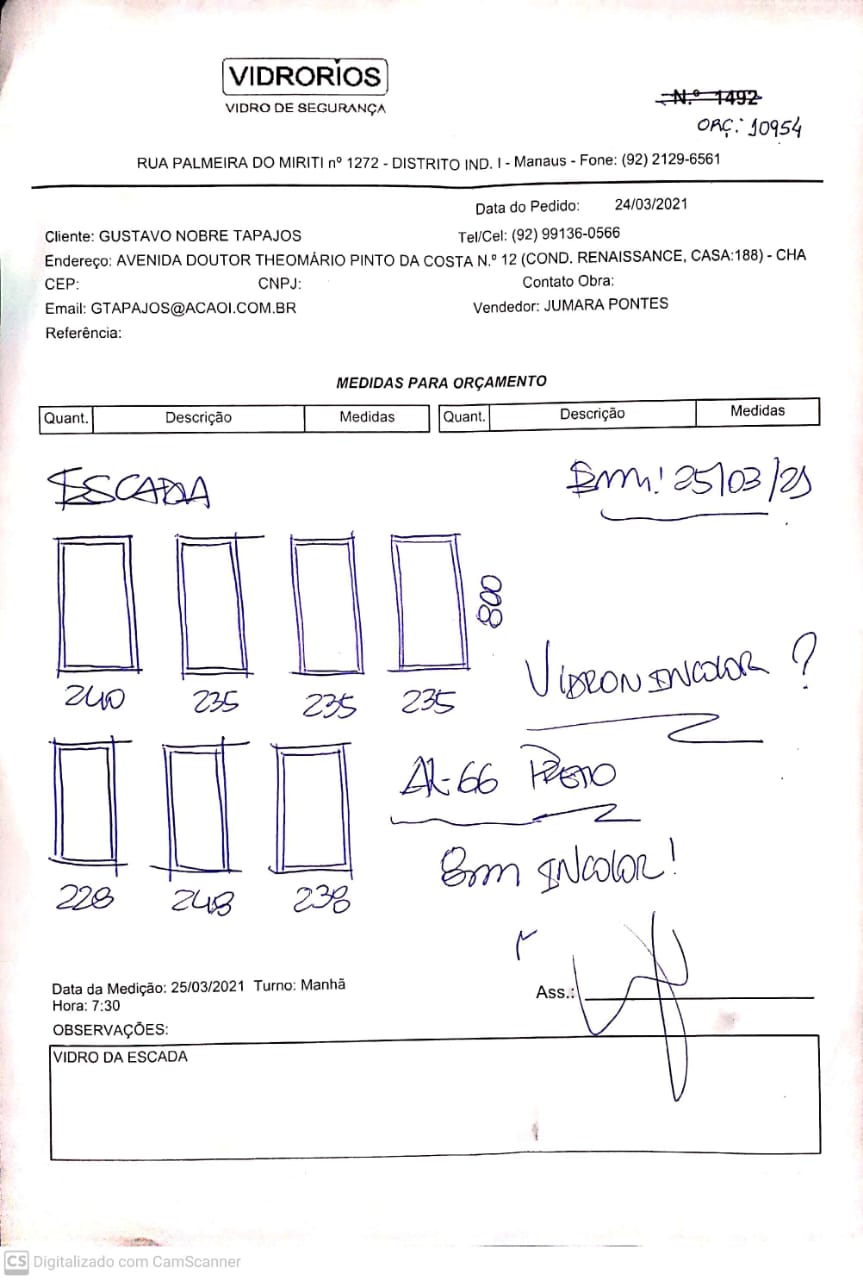 VIDRORIOS
VIDRO DE SEGURANÇA
N.º 1492
ORÇ: 10954
RUA PALMEIRA DO MIRITI nº 1272 - DISTRITO IND. I - Manaus - Fone: (92) 2129-6561
Data do Pedido: 24/03/2021
Cliente: GUSTAVO NOBRE TAPAJOS Tel/Cel: (92) 99136-0566
Endereço: AVENIDA DOUTOR THEOMÁRIO PINTO DA COSTA N.º 12 (COND. RENAISSANCE, CASA:188) - CHA
CEP: CNPJ: Contato Obra:
Email: GTAPAJOS@ACAOI.COM.BR Vendedor: JUMARA PONTES
Referência:
MEDIDAS PARA ORÇAMENTO
Quant. Descrição Medidas Quant. Descrição Medidas
ESCADA
Em: 25/03/21
800
240 235 235 235
VIDRO INCOLOR ?
AL-66 PRETO
8mm INCOLOR!
228 248 238
Data da Medição: 25/03/2021 Turno: Manhã
Hora: 7:30
Ass.:
OBSERVAÇÕES:
VIDRO DA ESCADA
CS Digitalizado com CamScanner